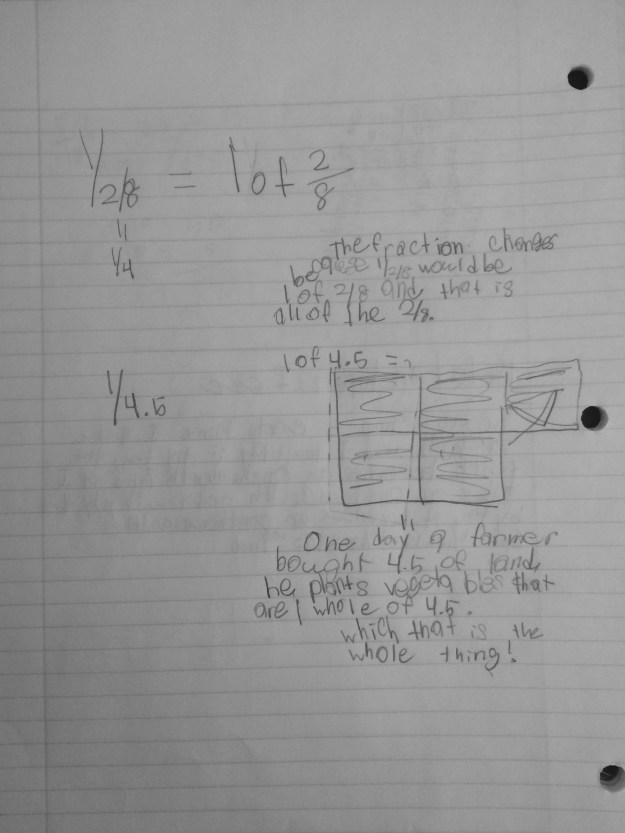 1/2/8 = 1 of 2/8
11
1/4
The fraction changes
because 1/2/8 would be
1 of 2/8 and that is
all of the 2/8.
1 of 4.5 =
1/4.5
11
One day a farmer
bought 4.5 of land,
he plants vegetables that
are 1 whole of 4.5.
which that is the
whole thing!